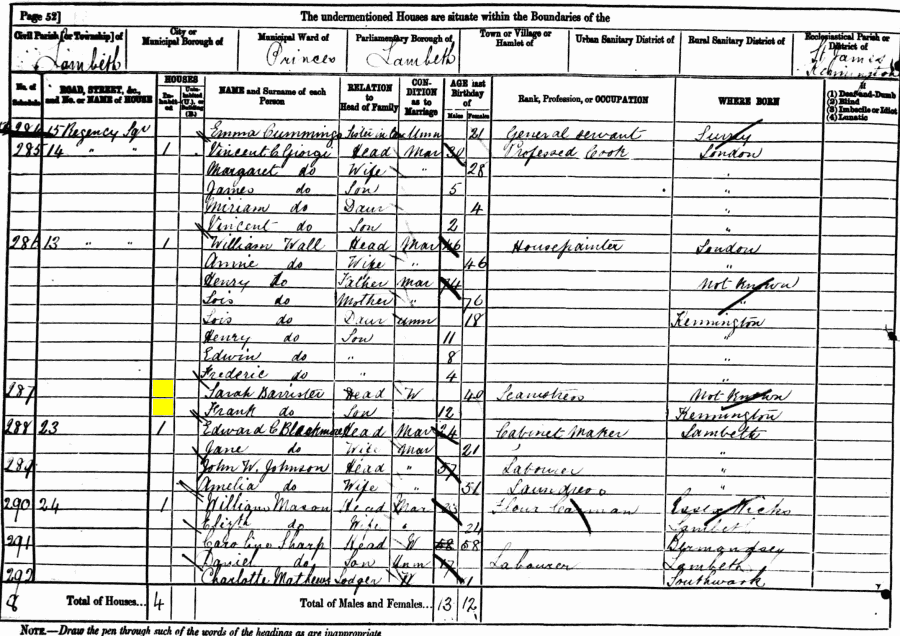 Page 52] The undermentioned Houses are situate within the Boundaries of the
Civil Parish [or Township] of City or Municipal Borough of Municipal Ward of Parliamentary Borough of Town or Village or Hamlet of Urban Sanitary District of Rural Sanitary District of Ecclesiastical Parish or District of
Lambeth Princes Lambeth St James Kennington
No. of Schedule ROAD, STREET, &c., and No. or NAME of HOUSE HOUSES Inhabited Uninhabited (U.), or (B.) NAME and Surname of each Person RELATION to Head of Family CONDITION as to Marriage AGE last Birthday of Males Females Rank, Profession, or OCCUPATION WHERE BORN If (1) Deaf-and-Dumb (2) Blind (3) Imbecile or Idiot (4) Lunatic
15 Regency Sqr Emma Cummings Sister in Law Unm 21 General servant Surry
285 14 " " 1 Vincent C Giorgi Head Mar Professed Cook London
Margaret do Wife " 28 "
James do Son 5 "
Miriam do Daur 4 "
Vincent do Son 2 "
286 13 " " 1 William Wall Head Mar 46 Housepainter London
Annie do Wife " 46 "
Henry do Father Mar 74 Not Known
Lois do Mother " "
Lois do Daur Unm 18 Kennington
Henry do Son 11 "
Edwin do " 8 "
Frederic do " 4 "
287 Sarah Barrister Head W 40 Seamstress Not Known
Frank do Son 12 Kennington
288 23 1 Edward C Blackmore Head Mar 24 Cabinet Maker Lambeth
Jane do Wife Mar 21 "
289 John W. Johnson Head " 57 Labourer "
Amelia do Wife " 51 Laundress "
290 24 1 William Mason Head Mar 23 Flour Carman Essex
Elizth do Wife " Lambeth
291 Caroline Sharp Head W 58 58 Bermondsey
Daniel do Son Unm 17 Labourer Lambeth
292 Charlotte Mathews Lodger W Southwark
8 Total of Houses... 4 Total of Males and Females... 13 12
NOTE.—Draw the pen through such of the words of the headings as are inappropriate